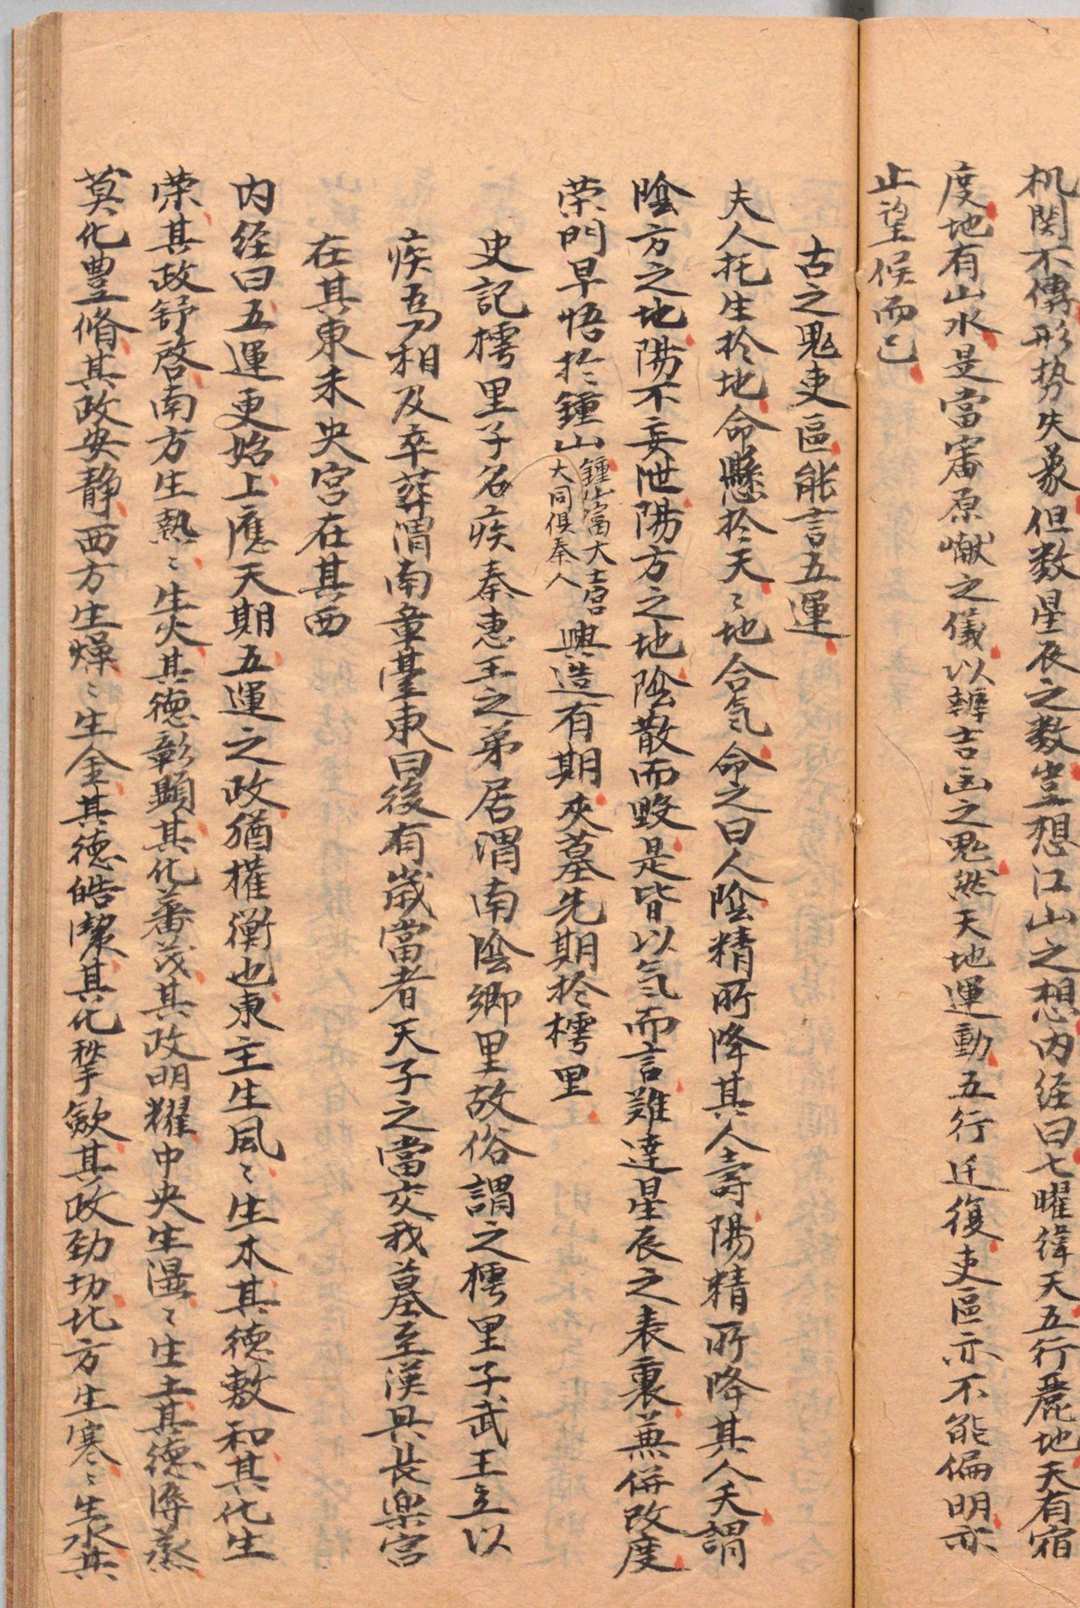 机関不傳形势失象但数星辰之数豈想江山之想内经曰七曜緯天五行麗地天有宿
度地有山水是當審原憷之儀以辨吉凶之鬼然天地運動五行迁復吏區亦不能偏明亦
止望候而已
古之鬼吏區能言五運
夫人托生於地命懸於天〻地合気命之曰人陰精所降其人壽陽精所降其人夭謂
陰方之地陽不妄泄陽方之地陰散而毁是皆以気而言難達星辰之表裏兼併改度
荣門早悟於鍾山
鍾山富大吉
大同俱奉人
興造有期夾墓先期於樗里
史記樗里子名疾秦惠王之弟居渭南陰郷里故俗謂之樗里子武王立以
疾為相及卒葬渭南章臺東曰後有歳當者天子之當夾我墓至漢具長樂宮
在其東未央宮在其西
内经曰五運更始上應天期五運之政猶權衡也東主生風〻生木其德敷和其化生
荣其政舒啓南方生熱〻生火其德彰顯其化蕃茂其政明耀中央生濕〻生土其德溽蒸
其化豊脩其政安静西方生燥〻生金其德皓潔其化揫斂其政劲切北方生寒〻生水其